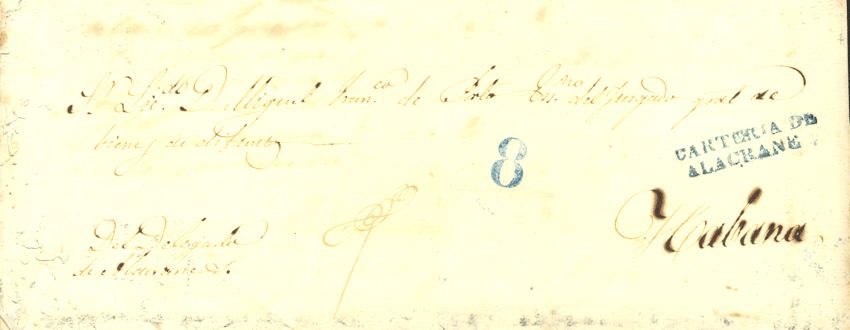 Sr. Licdo. D. Miguel Franco. de Porto Esno. del Juzgado gral de
bienes de difuntos
8
CARTERIA DE
ALACRANE
Habana
Del Delegado
de Alacranes